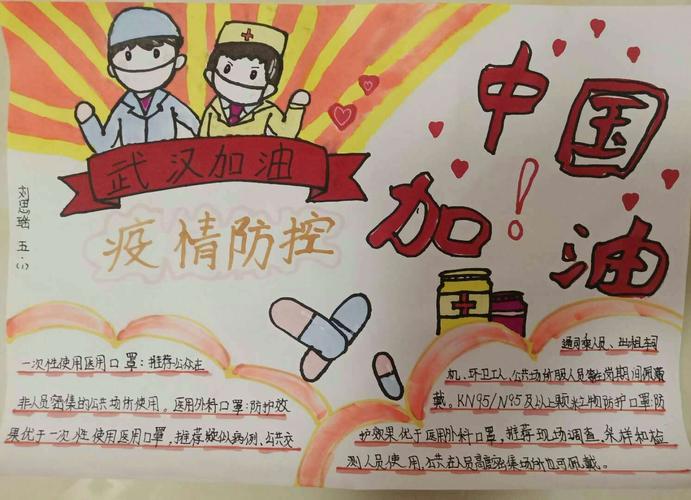 武汉加油
疫情防控
中国
加!油
思瑶 五.(1)
一次性使用医用口罩:推荐公众在
非人员密集的公共场所使用。医用外科口罩:防护效
果优于一次性使用医用口罩,推荐疑似病例、公共交
通司乘人员、出租车司
机、环卫工人、公共场所服人员等在岗期间佩
戴。KN95/N95及以上颗粒物防护口罩:防
护效果优于医用外科口罩,推荐现场调查、采样和检
测人员使用,公共在人员高度密集场所也可佩戴。